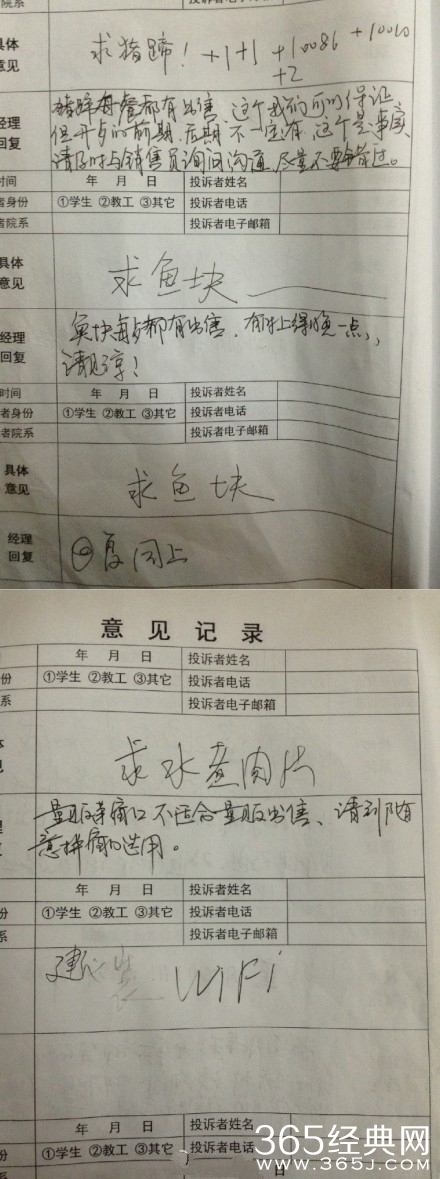 具体
意见
求猪蹄! +1+1 +10086 +10010
+2
经理
回复
猪蹄每餐都有出售、这个我们可以保证
但开餐的前期、后期不一定有、这个是事实
请及时与销售员询问沟通、尽量不要错过。
时间 年 月 日 投诉者姓名
者身份 ①学生 ②教工 ③其它 投诉者电话
者院系 投诉者电子邮箱
具体
意见
求鱼块
经理
回复
鱼块每餐都有出售、有时上得晚一点,
请见谅!
时间 年 月 日 投诉者姓名
者身份 ①学生 ②教工 ③其它 投诉者电话
者院系 投诉者电子邮箱
具体
意见
求鱼块
经理
回复
回复同上
意见记录
年 月 日 投诉者姓名
份 ①学生 ②教工 ③其它 投诉者电话
系 投诉者电子邮箱
求水煮肉片
量贩窗口不适合量贩出售、请到随
意择窗口选用。
年 月 日 投诉者姓名
份 ①学生 ②教工 ③其它 投诉者电话
系 投诉者电子邮箱
建议装 WiFi
年 月 日 投诉者姓名
份 ①学生 ②教工 ③其它 投诉者电话
365经典网
www.365j.com